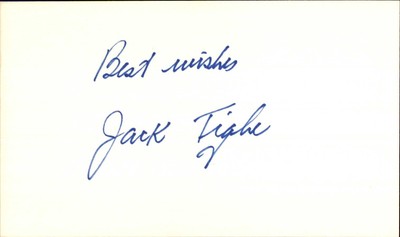 Best wishes
Jack Tighe